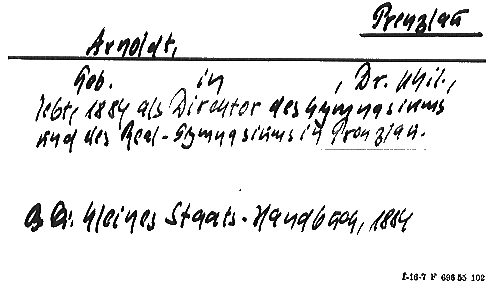 Prenzlau
Arnoldt,
Geb. in , Dr. phil.,
lebte 1884 als Direktor des Gymnasiums
und des Real-Gymnasiums in Prenzlau.
Kleines Staats-Handbuch, 1884
I-16-7 F 696 55 102